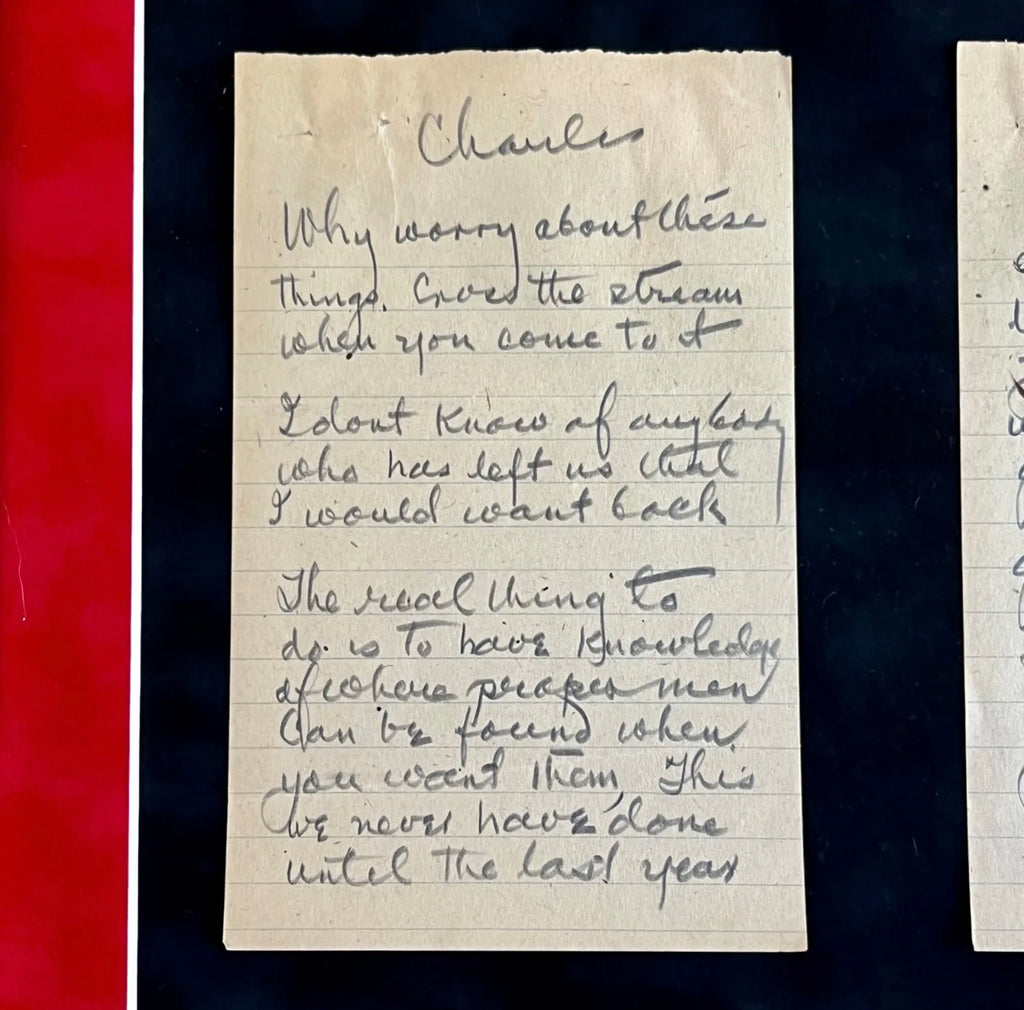 Charles
Why worry about these
things. Cross the stream
when you come to it
I dont know of anybody
who has left us that
I would want back
The real thing to
do is to have knowledge
of where proper men
Can be found when
you want them, This
we never have done
until the last year